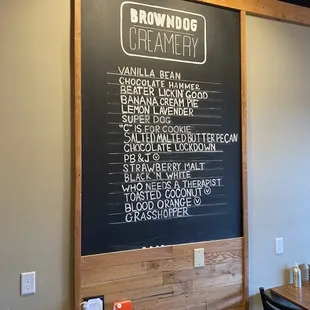 BROWNDOG
CREAMERY
VANILLA BEAN
CHOCOLATE HAMMER
BEATER LICKIN GOOD
BANANA CREAM PIE
LEMON LAVENDER
SUPER DOG
"C" IS FOR COOKIE
SALTED MALTED BUTTER PECAN
CHOCOLATE LOCKDOWN
PB & J
STRAWBERRY MALT
BLACK 'N WHITE
WHO NEEDS A THERAPIST
TOASTED COCONUT
BLOOD ORANGE
GRASSHOPPER